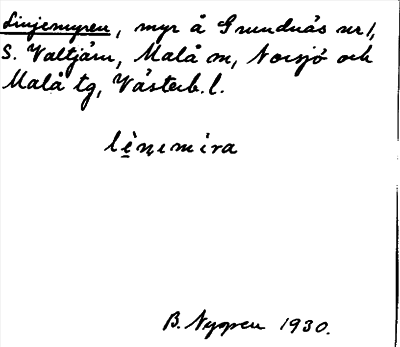 Linjemyren, myr å Grundnäs nr 1,
S. Valtjärn, Malå sn, Norsjö och
Malå tg, Västerb. l.
lìnemira
B. Nygren 1930.